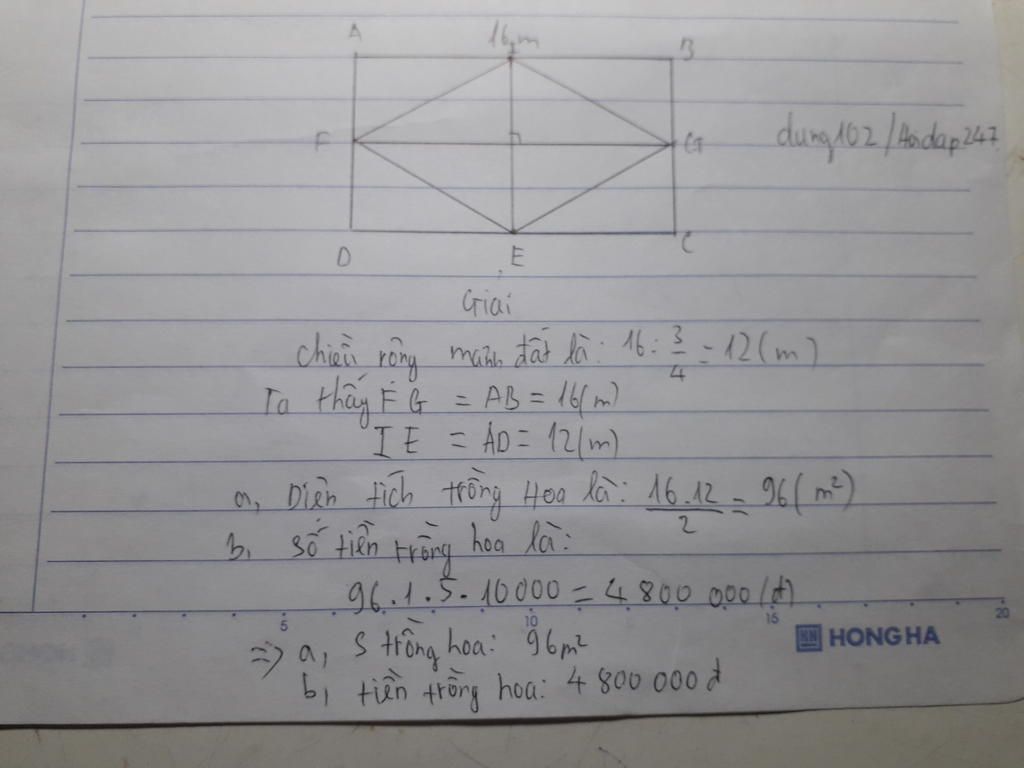 A 16m B
I
F G dung102/Hoidap247
D E C
Giải
Chiều rộng mảnh đất là: 16 : 3/4 = 12 (m)
Ta thấy FG = AB = 16 (m)
IE = AD = 12 (m)
a, Diện tích trồng Hoa là: 16.12/2 = 96 (m²)
b, Số tiền trồng hoa là:
96.1.5.10000 = 4 800 000 (đ)
5 10 15 20
HONG HA
=> a, S trồng hoa: 96m²
b, tiền trồng hoa: 4 800 000 đ